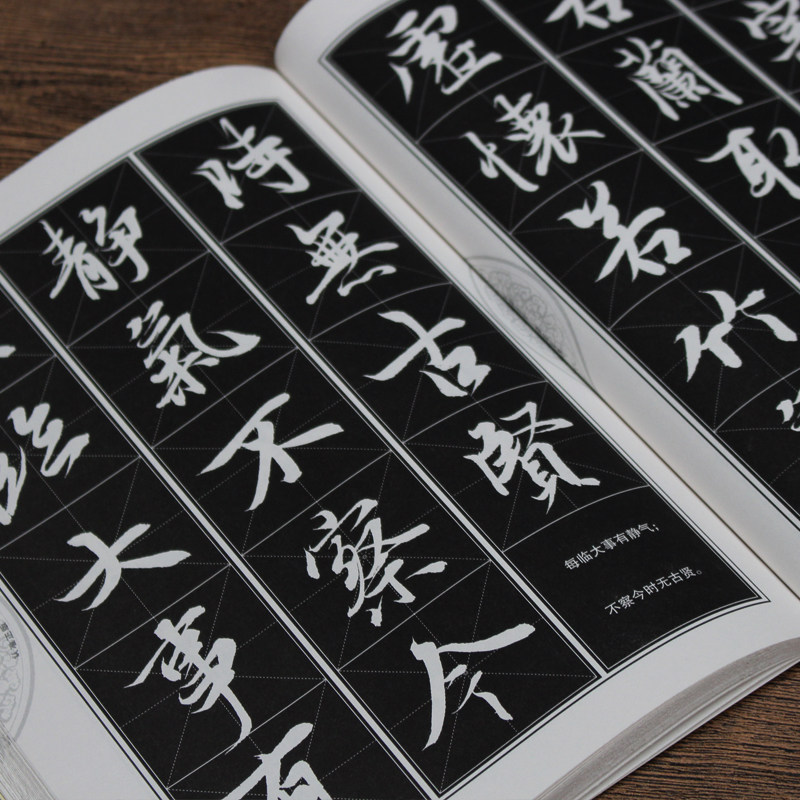 臨大事有
靜氣不察今
時無古賢
每临大事有静气；
不察今时无古贤。
虛懷若竹
蘭